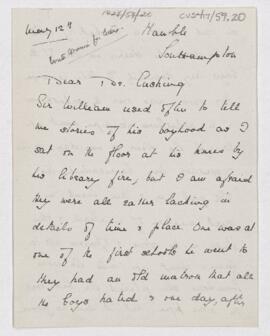 CUS417/59.20
May 12th
Hamble
Southampton
Dear Dr. Cushing
Sir William used often to tell
me stories of his boyhood as I
sat on the floor at his knees by
his library fire, but I am afraid
they were all rather lacking in
details of time & place. One was at
one of the first schools he went to
they had an old matron that all
the boys hated & one day, after